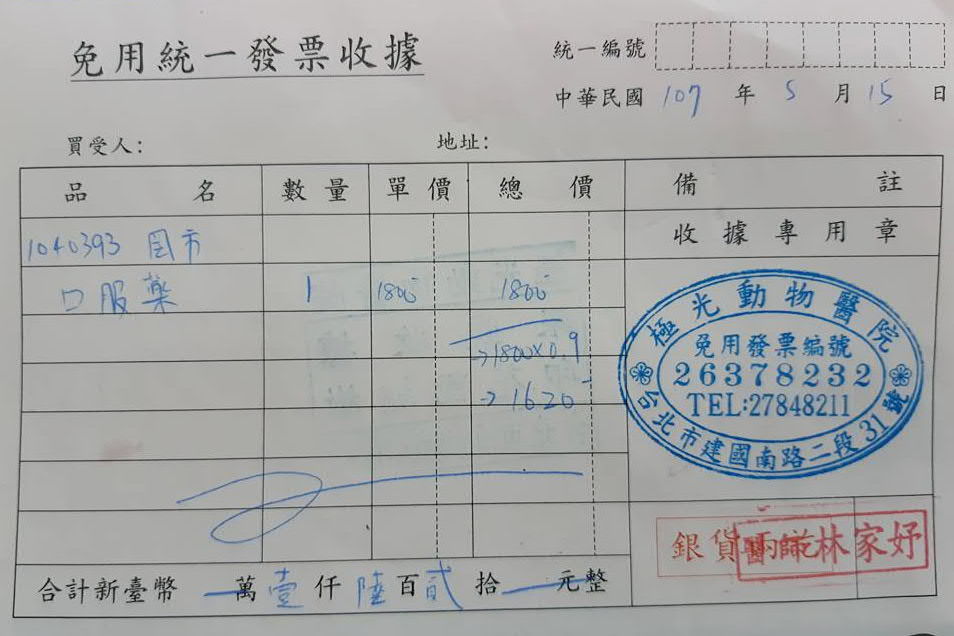 免用統一發票收據
統一編號
中華民國 107 年 5 月 15 日
買受人: 地址:
品名 數量 單價 總價 備註
收據專用章
1040393 国市
口服藥 1 1800 1800
→1800×0.9
→1620
極光動物醫院
免用發票編號
26378232
TEL:27848211
台北市建國南路二段31號
銀貨兩訖
醫師林家妤
合計新臺幣 萬壹仟陸百貳拾 元整